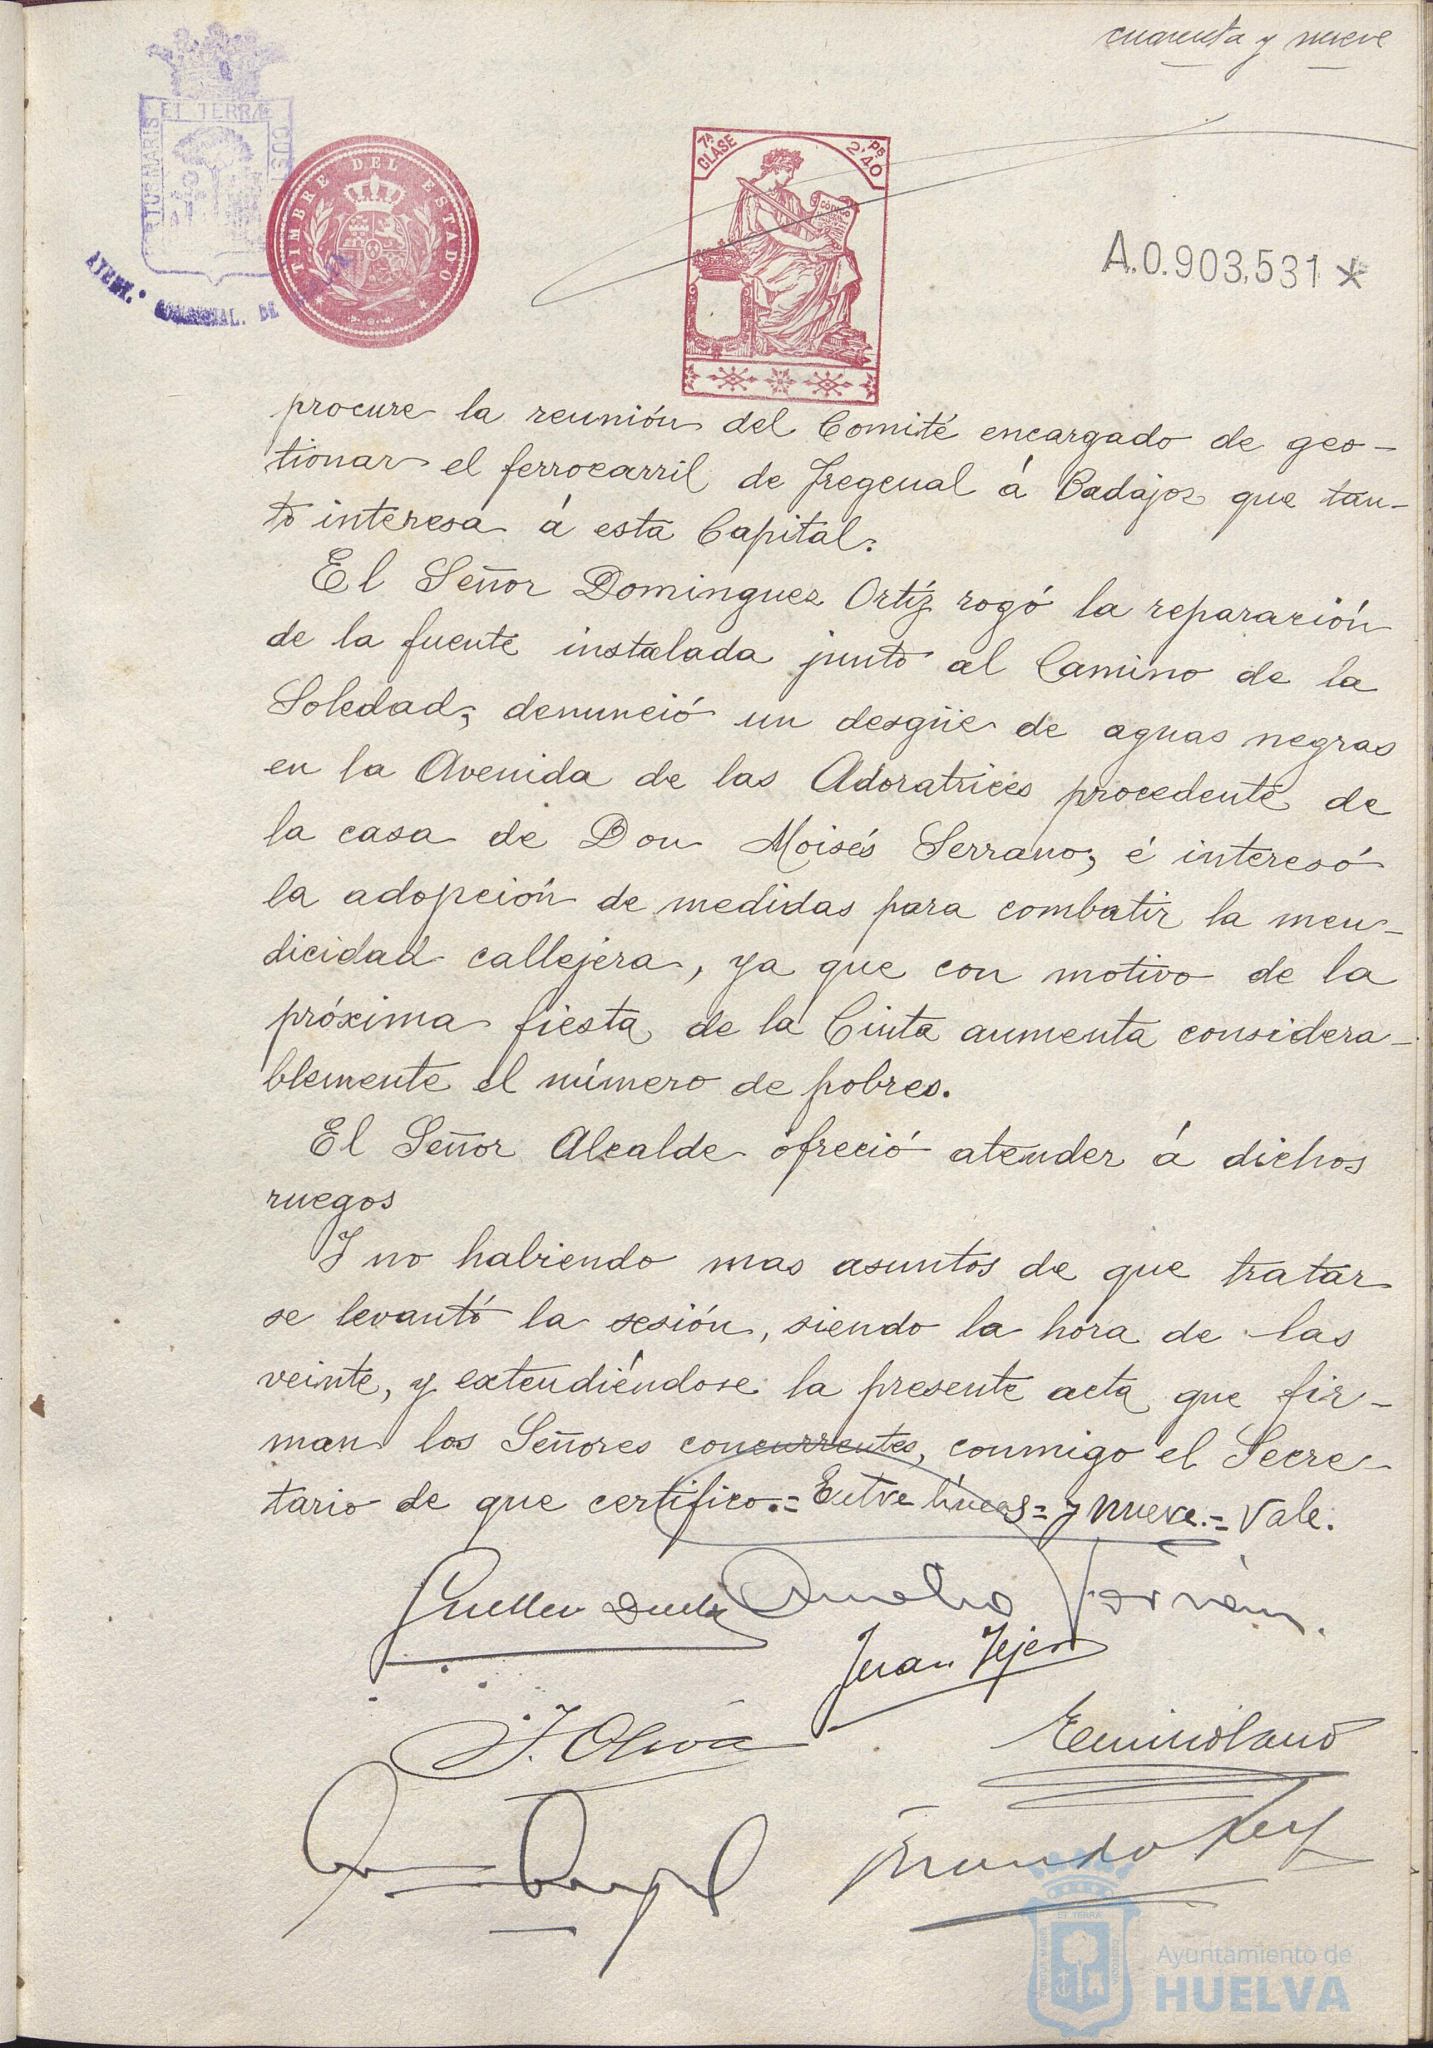 cuarenta y nueve
ET TERRÆ
TUS MARIS
TIMBRE DEL ESTADO
7ª CLASE
Ps 2'40
CÓDIGO
A.0.903,531 *
procure la reunión del Comité encargado de ges-
tionar el ferrocarril de Fregenal á Badajoz que tan-
to interesa á esta Capital.
El Señor Dominguez Ortíz rogó la reparación
de la fuente instalada junto al Camino de la
Soledad; denunció un desgüe de aguas negras
en la Avenida de las Adoratrices procedente de
la casa de Don Moisés Serrano, é interesó
la adopción de medidas para combatir la men-
dicidad callejera, ya que con motivo de la
próxima fiesta de la Cinta aumenta considera-
blemente el número de pobres.
El Señor Alcalde ofreció atender á dichos
ruegos
Y no habiendo mas asuntos de que tratar
se levantó la sesión, siendo la hora de las
veinte, y extendiéndose la presente acta que fir-
man los Señores concurrentes, conmigo el Secre-
tario de que certifico.= Entre líneas= y nueve.= Vale.
Juan Tejero
J. Oliva
Ayuntamiento de
HUELVA